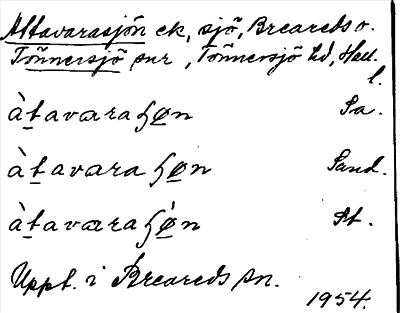 Attavarasjön ek, sjö, Breareds o.
Tönnersjö snr, Tönnersjö hd, Hall.
l.
àtavaraɧøn Sa.
àtavaraɧøn Sand.
àtavaraɧø̀n St.
Uppt. i Breareds sn.
1954.